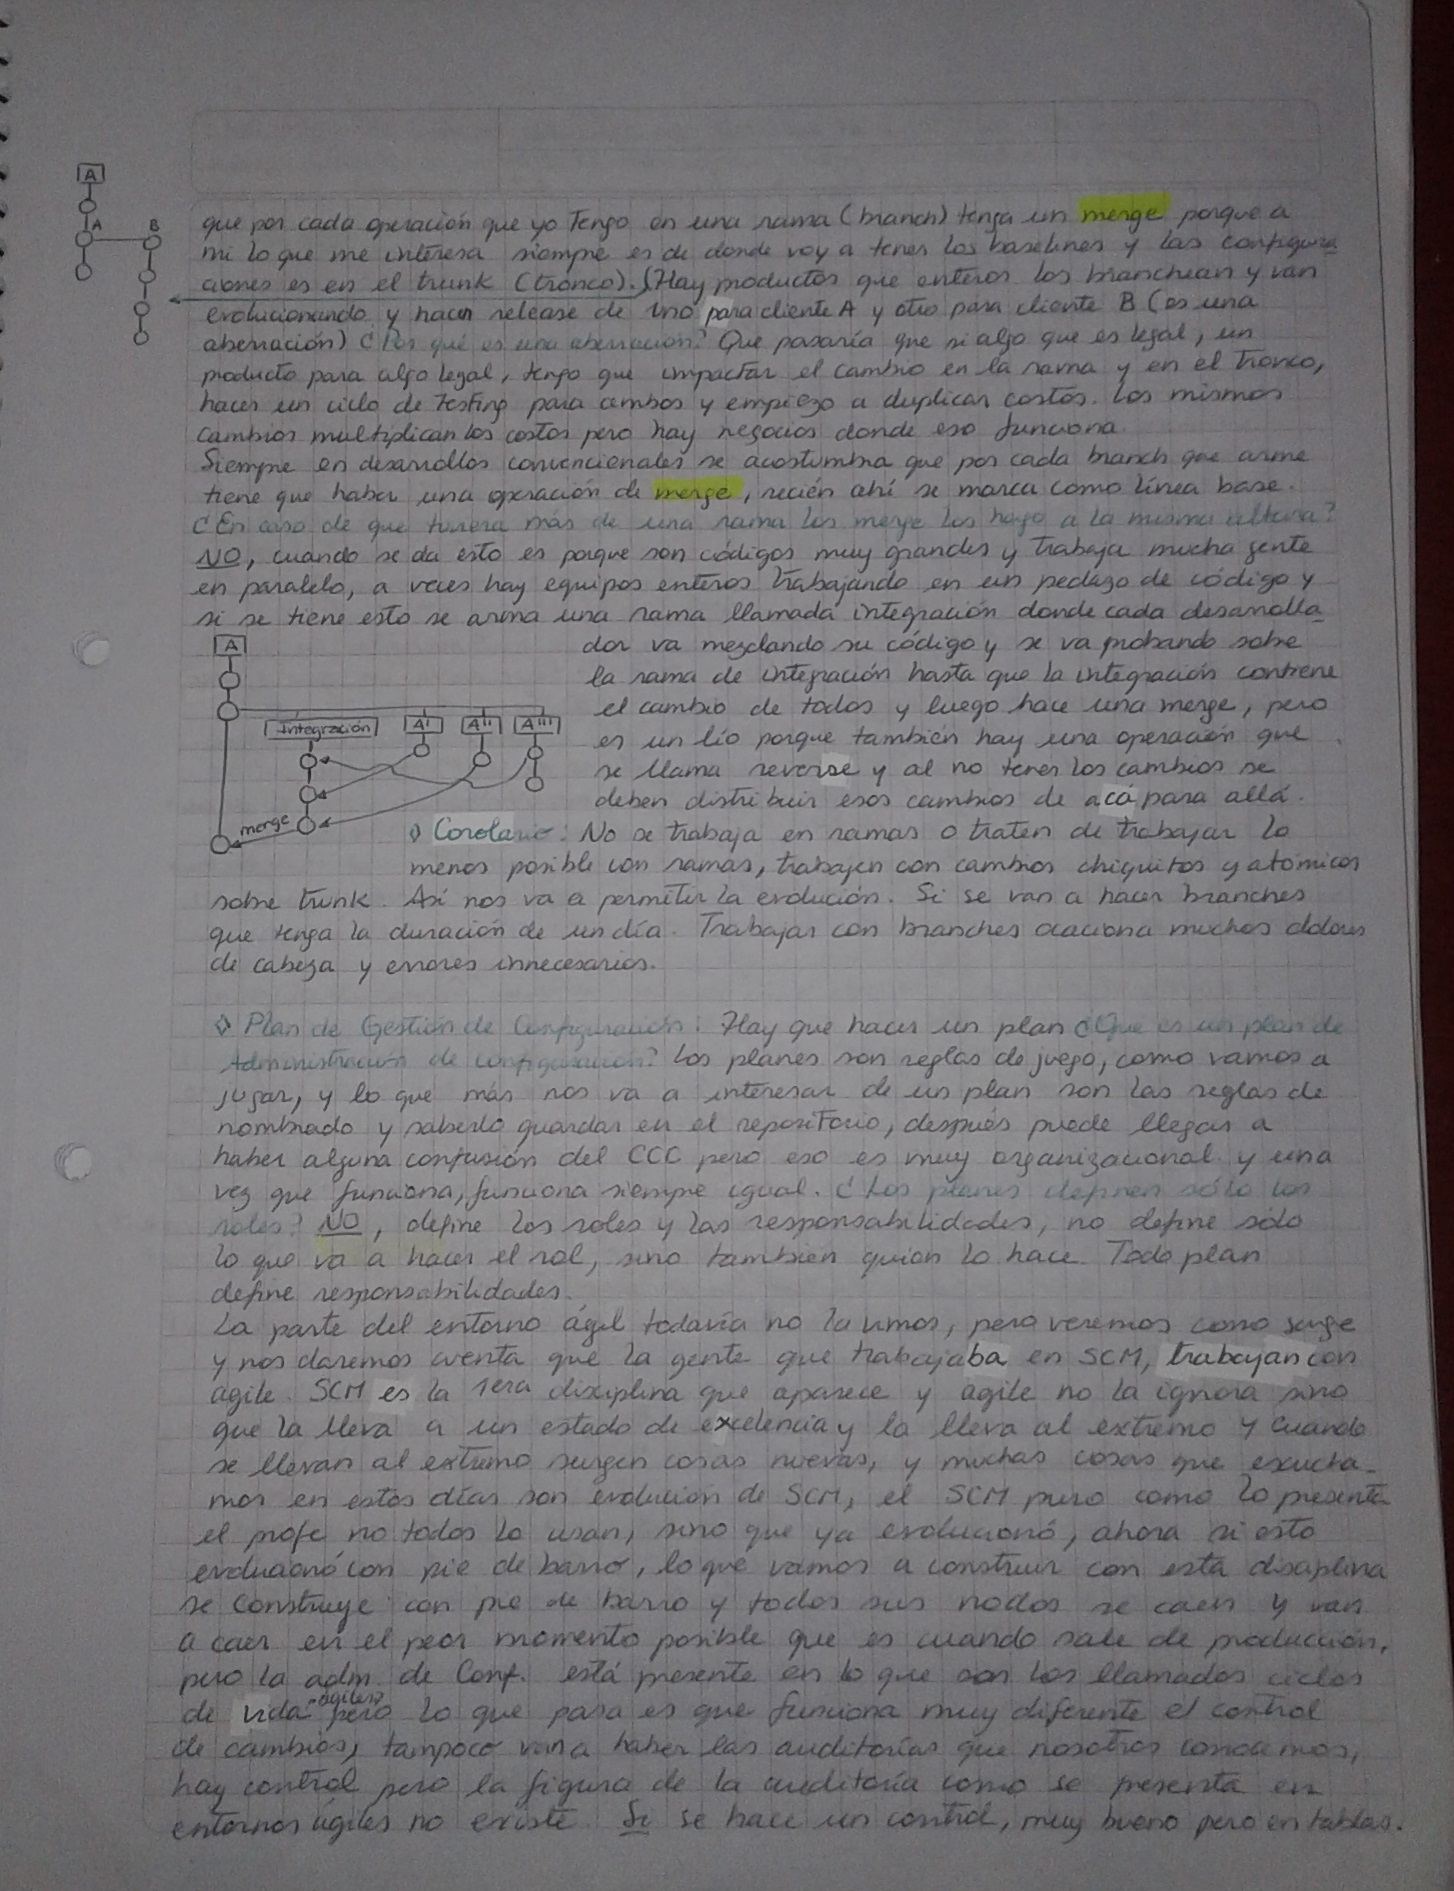 A
A B
que por cada operación que yo Tengo en una rama (branch) tenga un merge porque a
mi lo que me interesa siempre es de donde voy a tener los baselines y las configura-
ciones es en el trunk (tronco). (Hay productos que enteros los branchean y van
evolucionando y hacen release de uno para cliente A y otro para cliente B (es una
aberración) ¿Por qué es una aberración? Que pasaría que si algo que es legal, un
producto para algo legal, tengo que impactar el cambio en la rama y en el Tronco,
hacer un ciclo de Testing para ambos y empiezo a duplicar costos. Los mismos
cambios multiplican los costos pero hay negocios donde eso funciona.
Siempre en desarrollos convencionales se acostumbra que por cada branch que arme
tiene que haber una operación de merge, recién ahí se marca como línea base.
¿En caso de que tuviera más de una rama los merge los hago a la misma altura?
NO, cuando se da esto es porque son códigos muy grandes y trabaja mucha gente
en paralelo, a veces hay equipos enteros trabajando en un pedazo de código y
si se tiene esto se arma una rama llamada integración donde cada desarrolla-
dor va mezclando su código y se va probando sobre
la rama de integración hasta que la integración contiene
el cambio de todos y luego hace una merge, pero
es un lío porque también hay una operación que
se llama reverse y al no tener los cambios se
deben distribuir esos cambios de acá para allá.
A
Integración A' A'' A'''
merge
◊ Corolario: No se trabaja en ramas o traten de trabajar lo
menos posible con ramas, trabajen con cambios chiquitos y atómicos
sobre trunk. Así nos va a permitir la evolución. Si se van a hacer branches
que tenga la duración de un día. Trabajar con branches ocaciona muchos dolores
de cabeza y errores innecesarios.
◊ Plan de Gestión de Configuración: Hay que hacer un plan ¿Que es un plan de
Administración de configuración? Los planes son reglas de juego, como vamos a
jugar, y lo que más nos va a interesar de un plan son las reglas de
nombrado y saberlo guardar en el repositorio, después puede llegar a
haber alguna confusión del CCC pero eso es muy organizacional y una
vez que funciona, funciona siempre igual. ¿Los planes definen sólo los
roles? NO, define los roles y las responsabilidades, no define sólo
lo que va a hacer el rol, sino también quien lo hace. Todo plan
define responsabilidades.
La parte del entorno ágil todavía no la vimos, pero veremos como surge
y nos daremos cuenta que la gente que trabajaba en SCM, trabajan con
agile. SCM es la 1era disciplina que aparece y agile no la ignora sino
que la lleva a un estado de excelencia y la lleva al extremo y cuando
se llevan al extremo surgen cosas nuevas, y muchas cosas que escucha-
mos en estos días son evolución de SCM, el SCM puro como lo presenta
el profe no todos lo usan, sino que ya evolucionó, ahora si esto
evolucionó con pie de barro, lo que vamos a construir con esta disciplina
se construye con pie de barro y todos sus nodos se caen y van
a caer en el peor momento posible que es cuando sale de producción,
pero la adm. de Conf. está presente en lo que son los llamados ciclos
de vida "agiles" pero lo que pasa es que funciona muy diferente el control
de cambios, tampoco van a haber las auditorías que nosotros conocemos,
hay control pero la figura de la auditoría como se presenta en
entornos ágiles no existe. Si se hace un control, muy bueno pero en tablas.